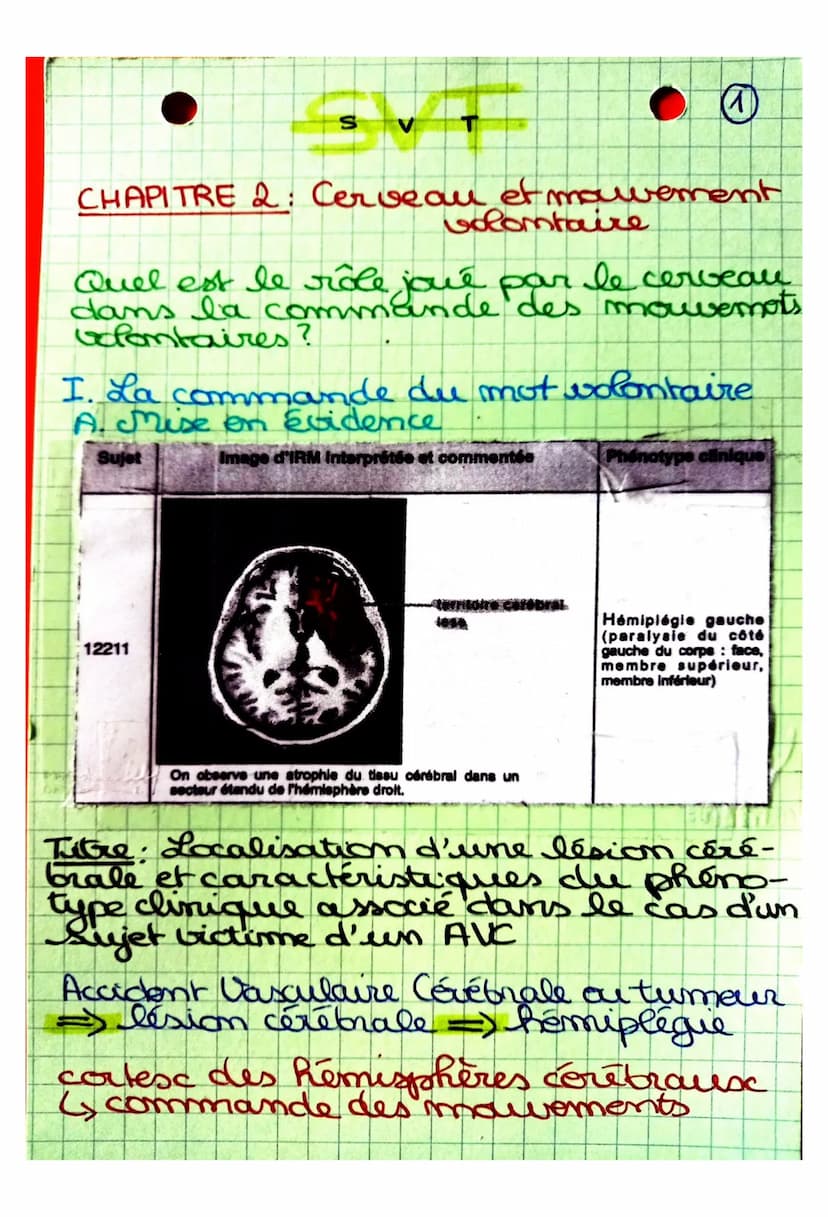 SVT
S V T
1
CHAPITRE 2 : Cerveau et mouvement
volontaire
Quel est le rôle joué par le cerveau
dans la commande des mouvemots
volontaires ?
I. La commande du mot volontaire
A. Mise en évidence
Sujet Image d'IRM interprétée et commentée Phénotype clinique
territoire cérébral
lésé
12211
Hémiplégie gauche
(paralysie du côté
gauche du corps : face,
membre supérieur,
membre inférieur)
On observe une atrophie du tissu cérébral dans un
secteur étendu de l'hémisphère droit.
Titre : Localisation d'une lésion céré-
brale et caractéristiques du phéno-
type clinique associé dans le cas d'un
Sujet victime d'un AVC
Accident Vasculaire Cérébrale ou tumeur
⇒ lésion cérébrale ⇒ hémiplégie
cortex des hémisphères cérébraux
↳ commande des mouvements